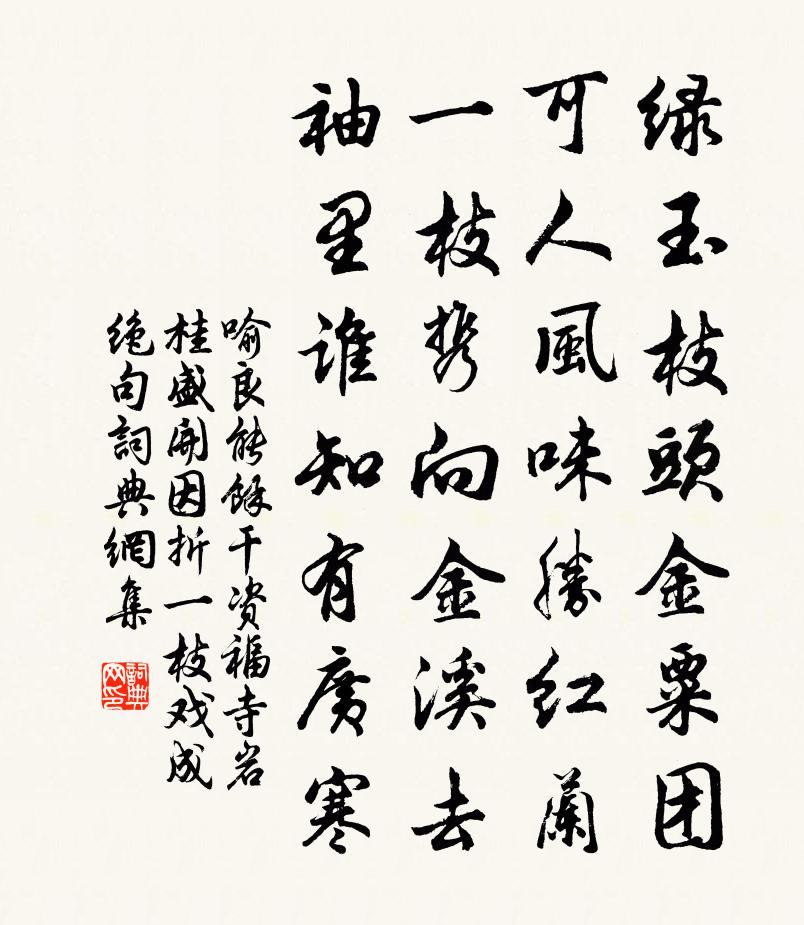 绿玉枝頭金粟团
可人風味勝红蘭
一枝携向金溪去
袖里谁知有廣寒
喻良能餘干资福寺岩
桂盛開因折一枝戏成
绝句詞典網集
詞典网印